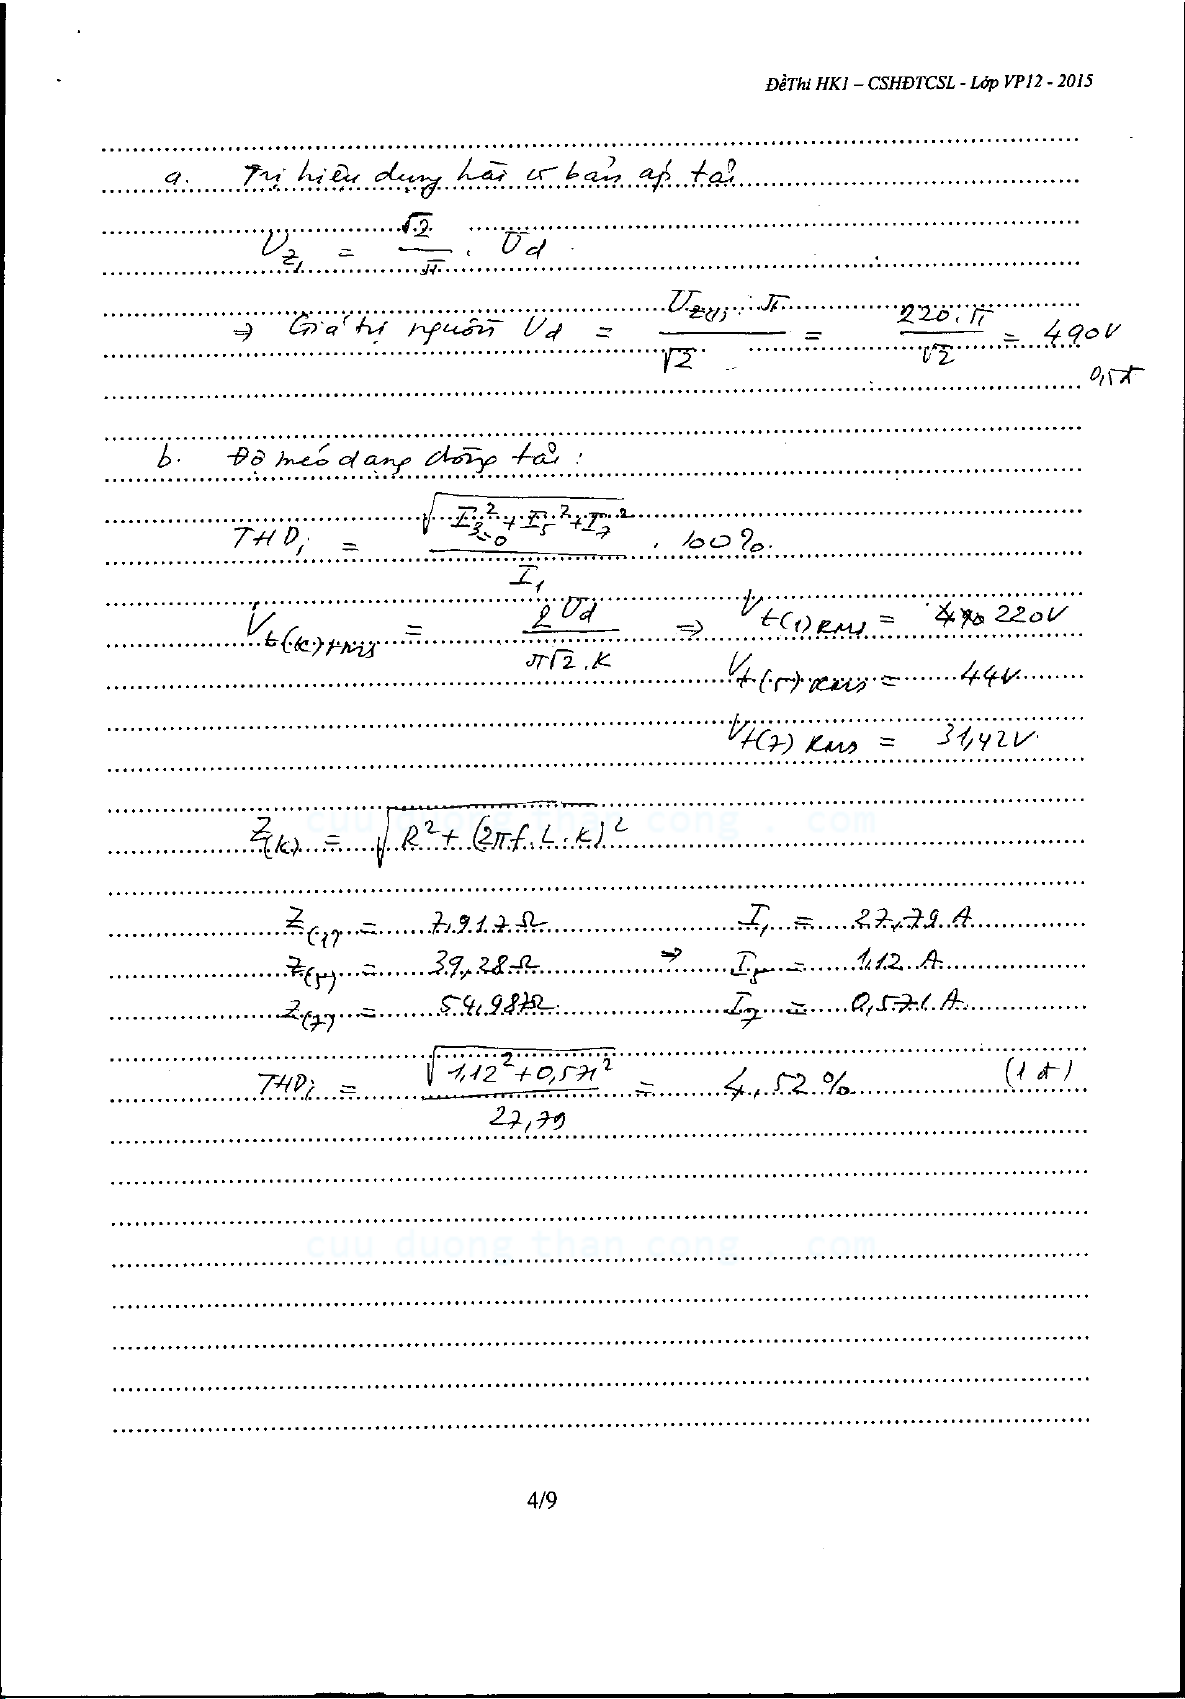 ĐềThi HK1 – CSHĐTCSL - Lớp VP12 - 2015
a. Trị hiệu dụng hài cơ bản áp tải
U_Z1 = √2/π . Ud
⇒ Giá trị nguồn Ud = U_Z(1) . π / √2 = 220.π / √2 = 490V
0,5đ
b. Độ méo dạng dòng tải :
THDi = √(I3²=0 + I5² + I7²) / I1 . 100%
Vt(k)rms = 2Ud / π√2.k ⇒ Vt(1)RMS = 220V
Vt(5)RMS = 44V
Vt(7)RMS = 31,42V
cuu duong than cong . com
Z(k) = √(R² + (2πf.L.k)²)
Z(1) = 7,917Ω I1 = 27,79 A
Z(5) = 39,28Ω ⇒ I5 = 1,12 A
Z(7) = 54,98Ω I7 = 0,571 A
THDi = √(1,12² + 0,571²) / 27,79 = 4,52% (1đ)
cuu duong than cong . com
4/9